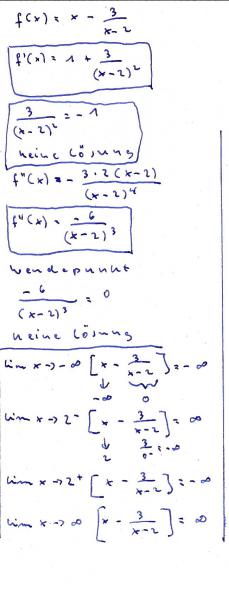 f(x) = x - 3/(x-2)
f'(x) = 1 + 3/(x-2)²
3/(x-2)² = -1
keine Lösung
f''(x) = - 3·2(x-2)/(x-2)⁴
f''(x) = -6/(x-2)³
Wendepunkt
-6/(x-2)³ = 0
keine Lösung
lim x→-∞ [x - 3/(x-2)] = -∞
↓ -∞ 0
lim x→2⁻ [x - 3/(x-2)] = ∞
↓ 2 3/0⁻ = -∞
lim x→2⁺ [x - 3/(x-2)] = -∞
lim x→∞ [x - 3/(x-2)] = ∞